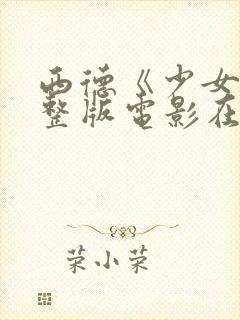 西德《少女
整版电影在
荣小荣